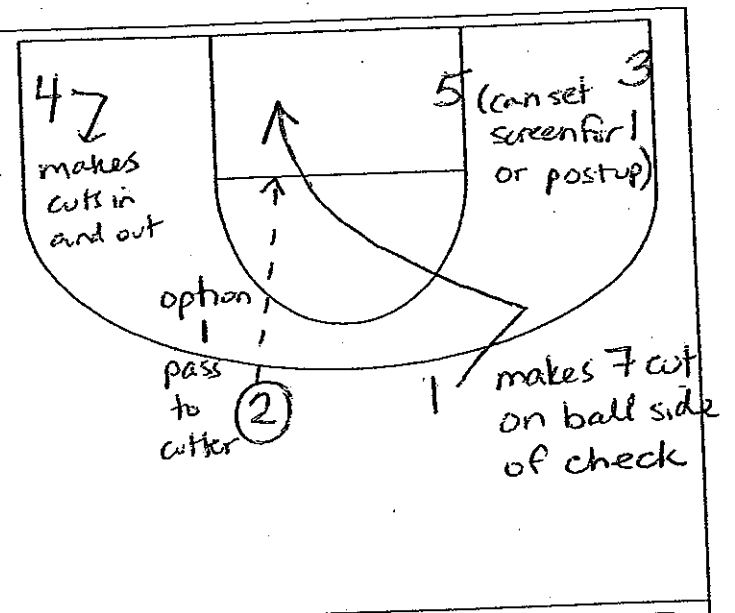 4
makes
cuts in
and out
5 (can set
screen for 1
or postup)
3
option
1
pass
to
cutter
2
1
makes 7 cut
on ball side
of check